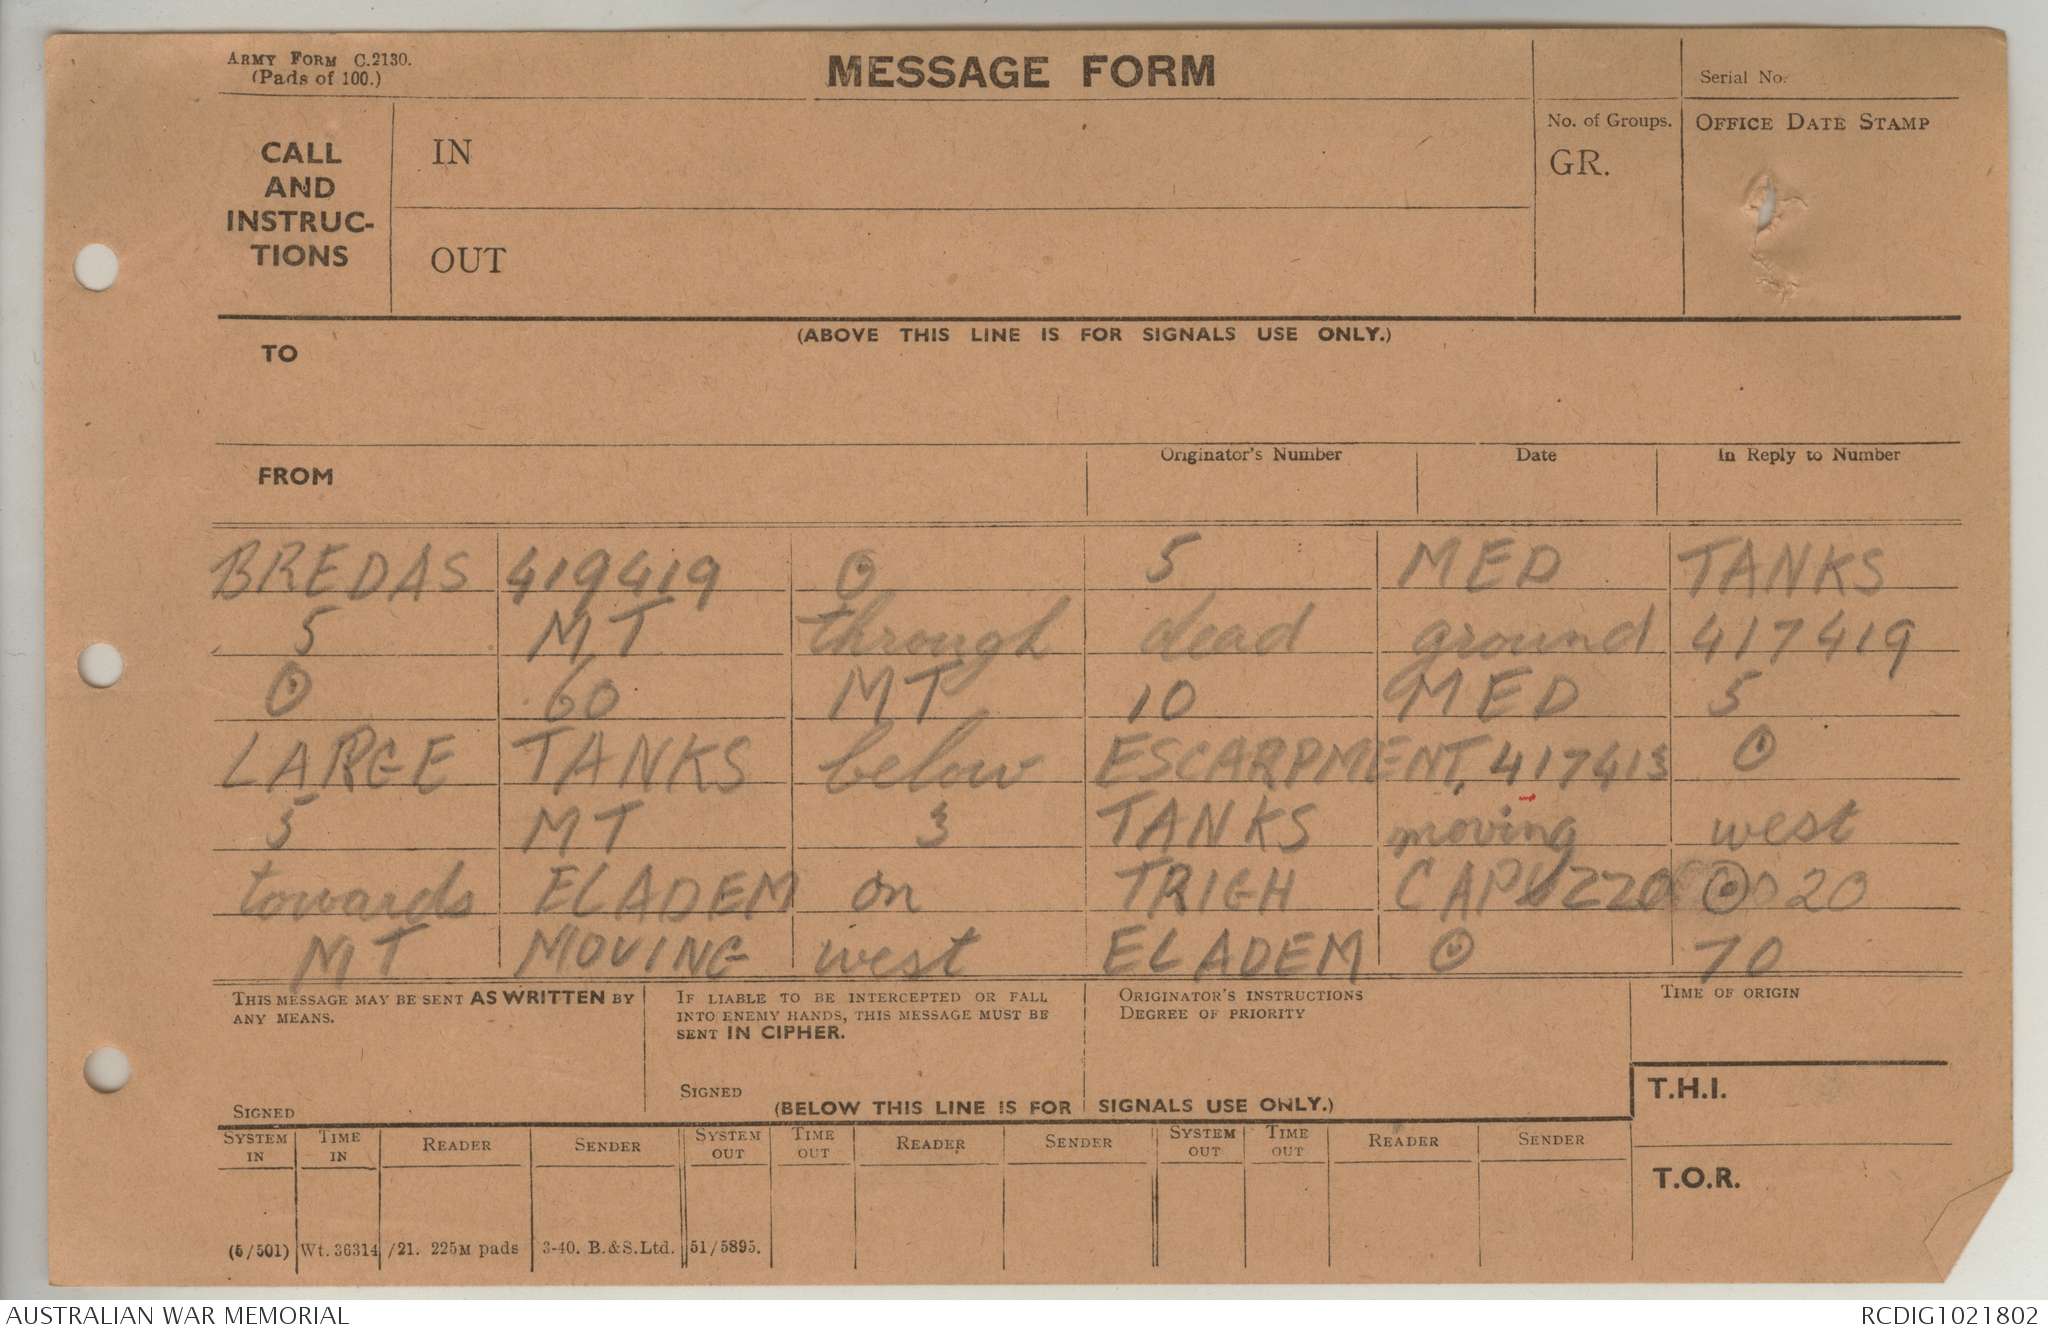 ARMY FORM C.2130.
(Pads of 100.)
MESSAGE FORM
Serial No.
CALL
AND
INSTRUC-
TIONS
IN
OUT
No. of Groups.
GR.
OFFICE DATE STAMP
(ABOVE THIS LINE IS FOR SIGNALS USE ONLY.)
TO
FROM
Originator's Number
Date
In Reply to Number
BREDAS 419419 ⊙ 5 MED TANKS
5 MT through dead ground 417419
⊙ 60 MT 10 MED 5
LARGE TANKS below ESCARPMENT. 417413 ⊙
5 MT 3 TANKS moving west
towards ELADEM on TRIGH CAPUZZO ⊙ 20
MT MOVING west ELADEM ⊙ 70
THIS MESSAGE MAY BE SENT AS WRITTEN BY
ANY MEANS.
SIGNED
IF LIABLE TO BE INTERCEPTED OR FALL
INTO ENEMY HANDS, THIS MESSAGE MUST BE
SENT IN CIPHER.
SIGNED
ORIGINATOR'S INSTRUCTIONS
DEGREE OF PRIORITY
TIME OF ORIGIN
(BELOW THIS LINE IS FOR SIGNALS USE ONLY.)
T.H.I.
T.O.R.
SYSTEM IN TIME IN READER SENDER SYSTEM OUT TIME OUT READER SENDER SYSTEM OUT TIME OUT READER SENDER
(5/501) Wt. 36314/21. 225M pads 3-40. B.&S.Ltd. 51/5895.
AUSTRALIAN WAR MEMORIAL
RCDIG1021802